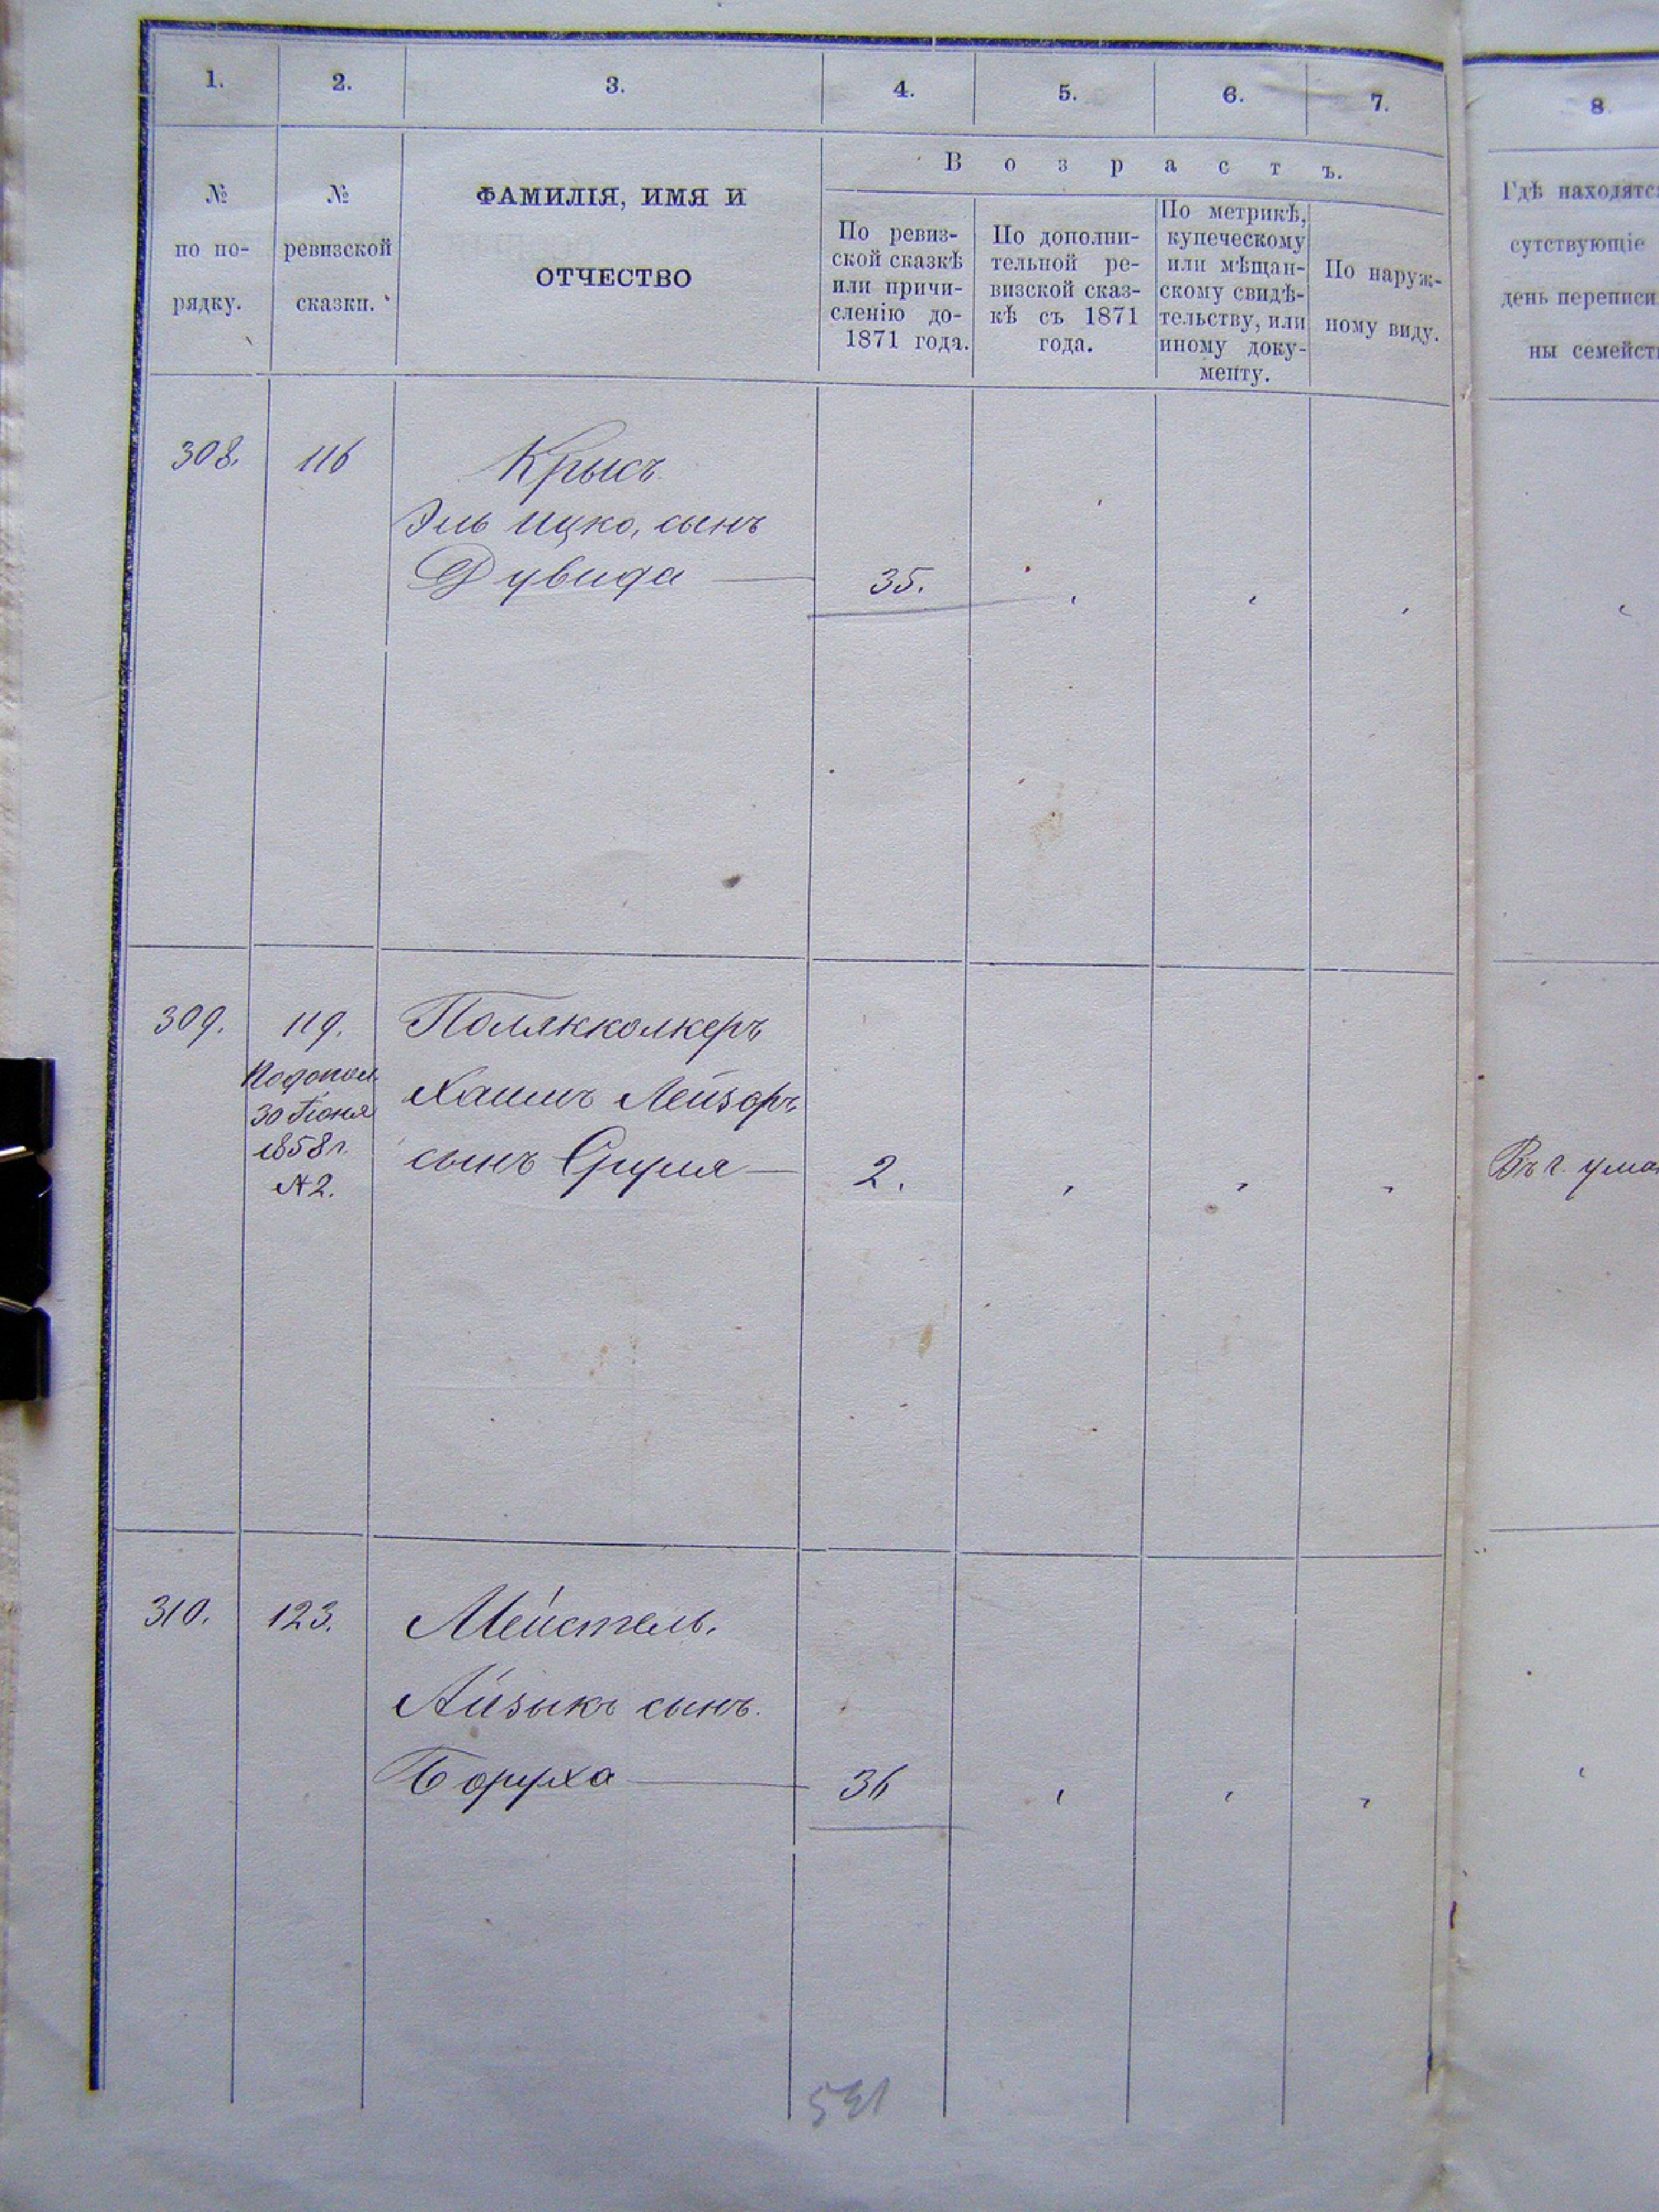 1.
2.
3.
4.
5.
6.
7.
8
№
по по-
рядку.
№
ревизской
сказки.
ФАМИЛІЯ, ИМЯ И
ОТЧЕСТВО
Возрастъ.
По ревиз-
ской сказкѣ
или причи-
сленію до-
1871 года.
По дополни-
тельной ре-
визской сказ-
кѣ съ 1871
года.
По метрикѣ,
купеческому
или мѣщан-
скому свидѣ-
тельству, или
иному доку-
менту.
По наруж-
ному виду.
Гдѣ находятся
сутствующіе
день переписи
ны семейст
308.
116
Крысъ
Эль Ицко, сынъ
Дувида
35.
309.
119.
Подопол.
30 Іюня
1858 г.
№ 2.
Полякколкеръ
Хаимъ Лейзоръ
сынъ Сруля
2.
Въ г. Ума
310.
123.
Мейстель.
Айзыкъ сынъ.
Боруха
36
531